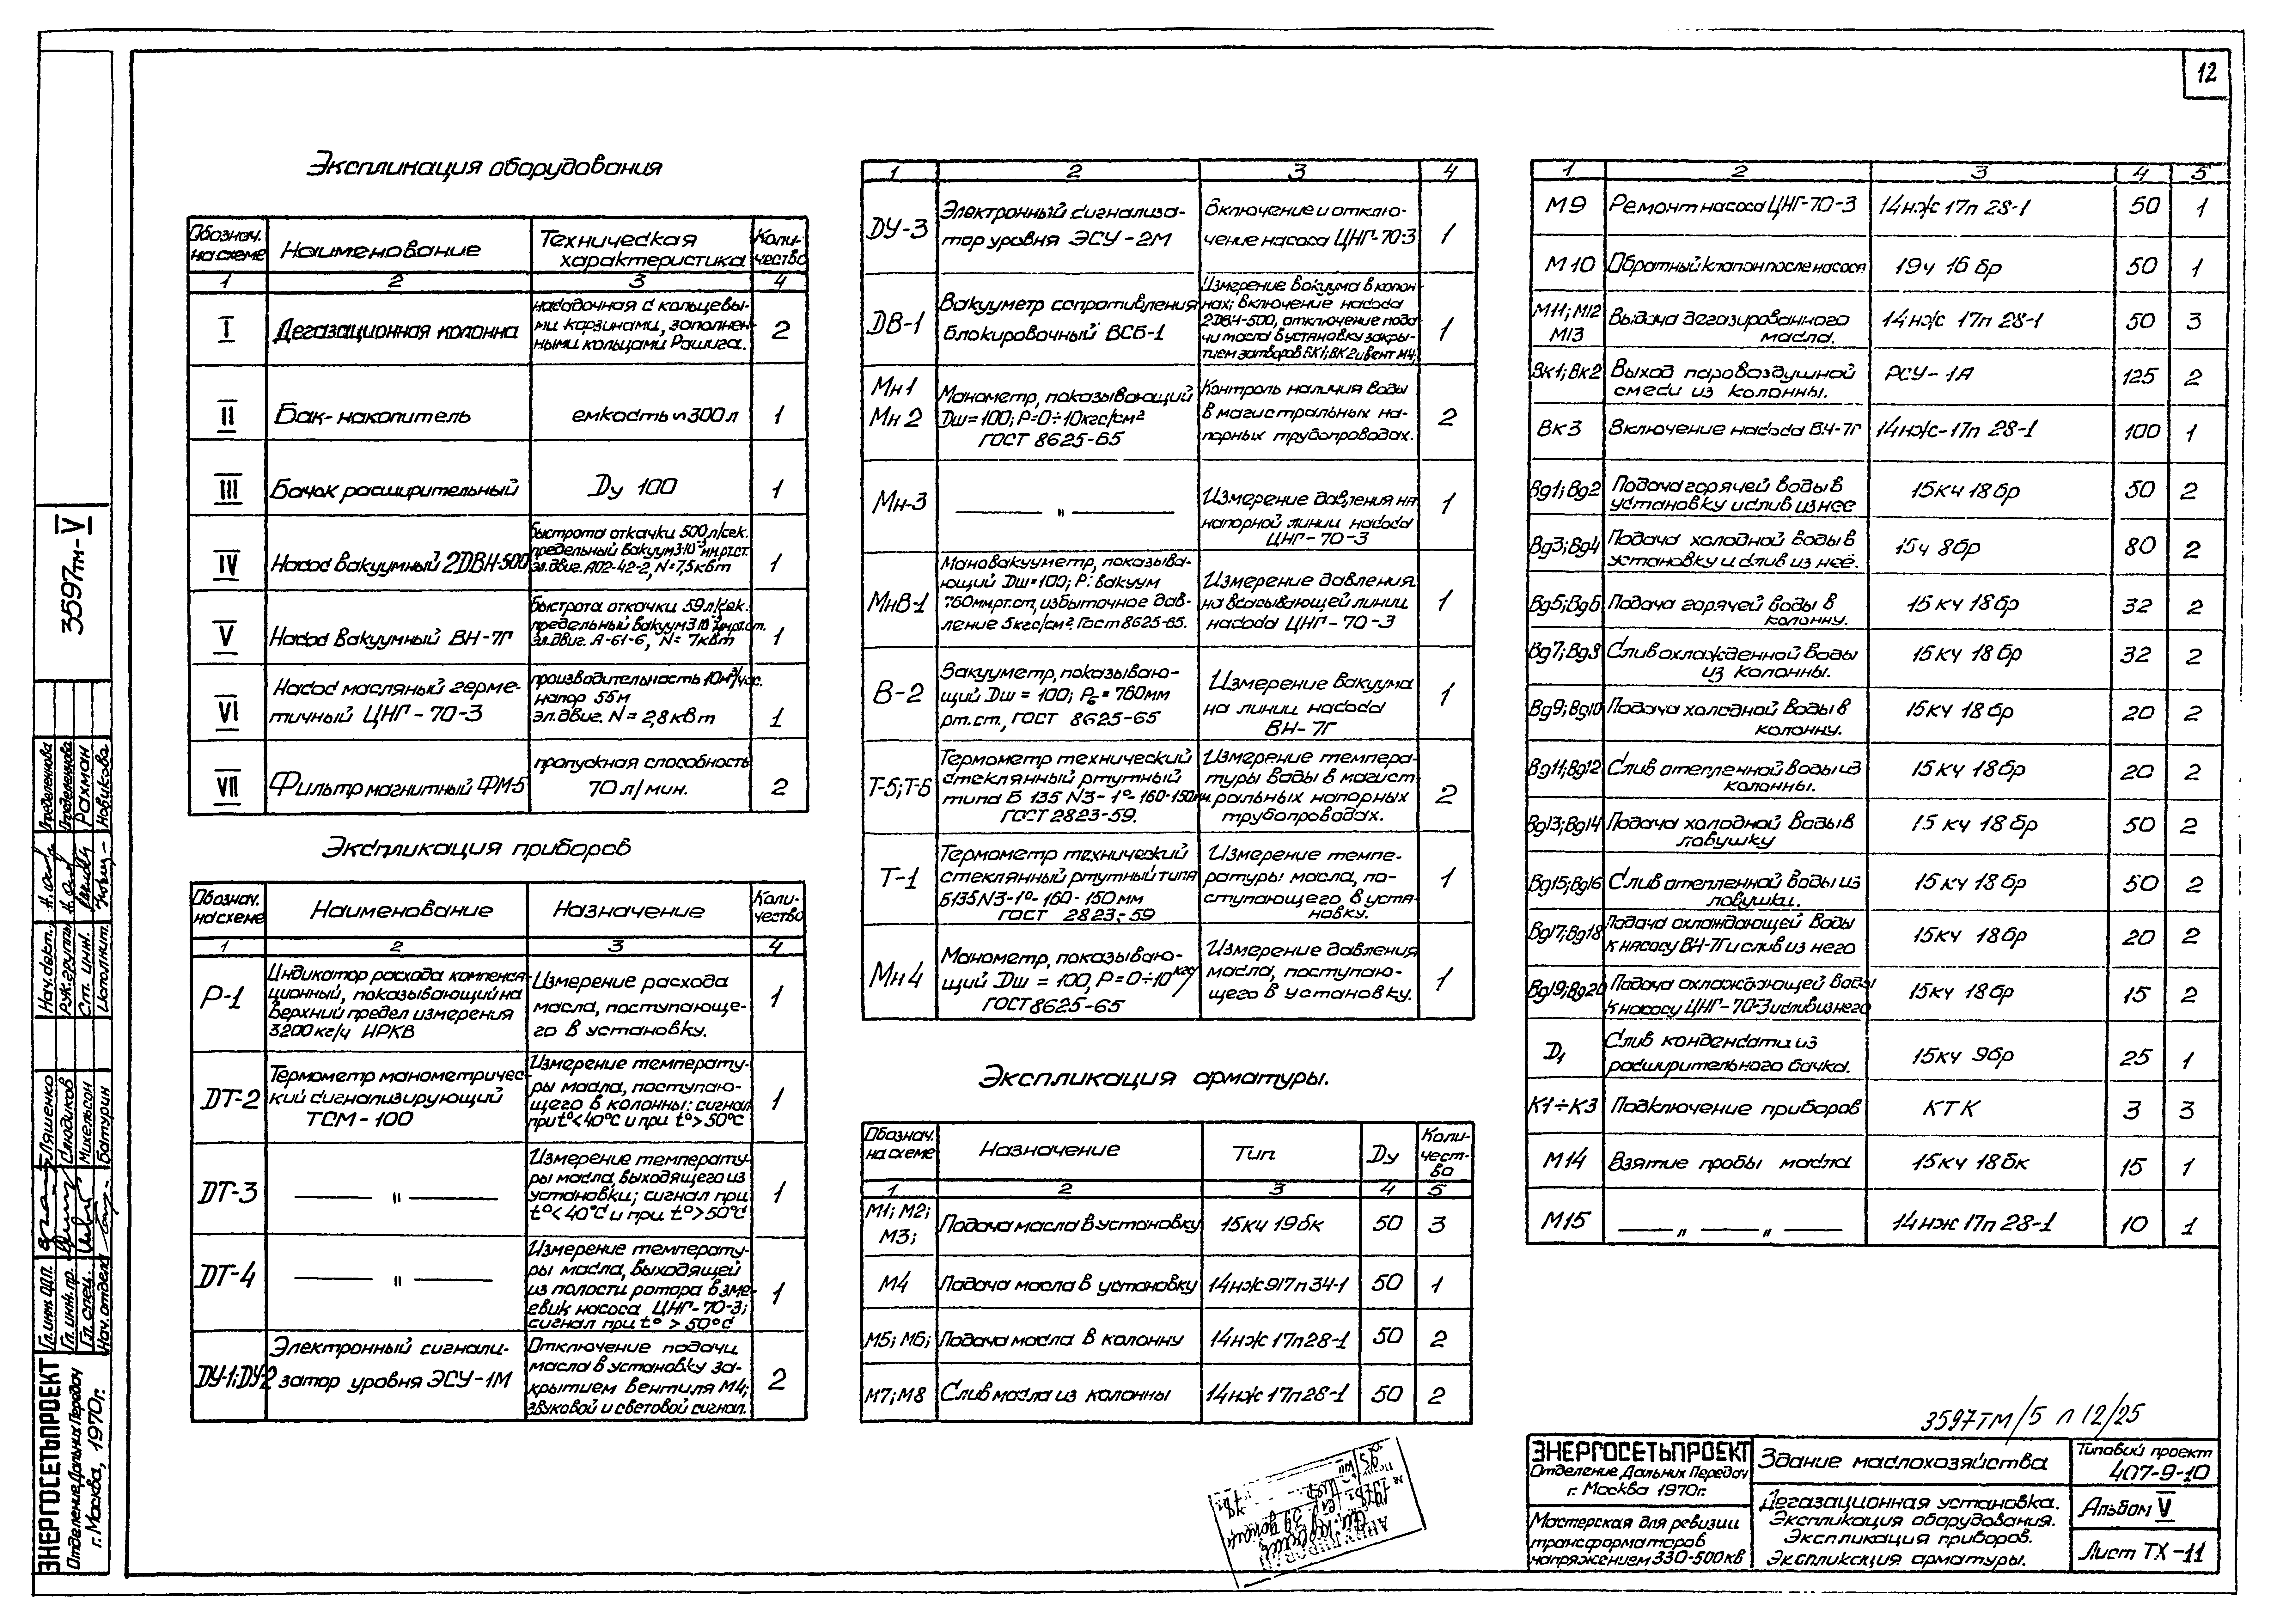 12
Экспликация оборудования
Обознач. на схеме | Наименование | Техническая характеристика | Коли-чество
1 | 2 | 3 | 4
I | Дегазационная колонна | насадочная с кольцевы-ми карзинами, заполнен-ными кольцами Рашига. | 2
II | Бак-накопитель | емкость ∽300л | 1
III | Бачок расширительный | Dу 100 | 1
IV | Насос вакуумный 2DВН-500 | быстрота откачки 500 л/сек. предельный вакуум 3·10⁻³ мм.рт.ст. эл.двиг. А02-42-2, N=7,5квт | 1
V | Насос вакуумный ВН-7Г | быстрота откачки 59л/сек. предельный вакуум мм.рт.ст. эл.двиг. А-61-6, N=7квт | 1
VI | Насос масляный герме-тичный ЦНГ-70-3 | производительность 10м³/час. напор 55м эл.двиг. N=2,8квт | 1
VII | Фильтр магнитный ФМ-5 | пропускная способность 70л/мин. | 2
Экспликация приборов
Обознач. на схеме | Наименование | Назначение | Коли-чество
1 | 2 | 3 | 4
Р-1 | Индикатор расхода компенса-ционный, показывающий на верхний предел измерения 3200кг/ч ИРКВ | Измерение расхода масла, поступающе-го в установку. | 1
DТ-2 | Термометр манометричес-кий сигнализирующий ТСМ-100 | Измерение температу-ры масла, поступаю-щего в колонны: сигнал при t°<40°С и при t°>50°С | 1
DТ-3 | —— " —— | Измерение температу-ры масла, выходящего из установки; сигнал при t°<40°С и при t°>50°С | 1
DТ-4 | —— " —— | Измерение температу-ры масла, выходящей из полости ротора в зме-евик насоса ЦНГ-70-3; сигнал при t° > 50°С | 1
DУ-1; DУ-2 | Электронный сигнали-затор уровня ЭСУ-1М | Отключение подачи масла в установку за-крытием вентиля М4; звуковой и световой сигнал. | 2
1 | 2 | 3 | 4
DУ-3 | Электронный сигнализа-тор уровня ЭСУ-2М | Включение и отклю-чение насоса ЦНГ-70-3 | 1
DВ-1 | Вакууметр сопротивления блокировочный ВСБ-1 | Измерение вакуума в колон-нах; включение насоса 2DВН-500, отключение пода-чи масла в установку закры-тием затворов ВК1; ВК2 и вент М4. | 1
Мн1 Мн2 | Манометр, показывающий Dш=100; Р=0÷10кгс/см² ГОСТ 8625-65 | Контроль наличия воды в магистральных на-порных трубопроводах. | 2
Мн-3 | —— " —— | Измерение давления на напорной линии насоса ЦНГ-70-3 | 1
МнВ-1 | Мановакууметр, показыва-ющий Dш=100; Р: вакуум 760мм.рт.ст, избыточное дав-ление 5кгс/см². Гост 8625-65. | Измерение давления на всасывающей линии насоса ЦНГ-70-3 | 1
В-2 | Вакууметр, показываю-щий Dш = 100; Рб = 760мм рт.ст., ГОСТ 8625-65 | Измерение вакуума на линии насоса ВН-7Г | 1
Т-5; Т-6 | Термометр технический стеклянный ртутный типа Б 135 N3-1°-160-150мм. ГОСТ 2823-59. | Измерение темпера-туры воды в магист-ральных напорных трубопроводах. | 2
Т-1 | Термометр технический стеклянный ртутный типа Б135N3-1°-160-150мм ГОСТ 2823-59 | Измерение темпе-ратуры масла, по-ступающего в уста-новку. | 1
Мн4 | Манометр, показываю-щий Dш = 100, Р=0÷10 ГОСТ 8625-65 | Измерение давления масла, поступаю-щего в установку. | 1
Экспликация арматуры.
Обознач. на схеме | Назначение | Тип | Dу | Коли-чест-во
1 | 2 | 3 | 4 | 5
М1; М2; М3; | Подача масла в установку | 15кч 19бк | 50 | 3
М4 | Подача масла в установку | 14нж917п34-1 | 50 | 1
М5; М6; | Подача масла в колонну | 14нж17п28-1 | 50 | 2
М7; М8 | Слив масла из колонны | 14нж17п28-1 | 50 | 2
1 | 2 | 3 | 4 | 5
М9 | Ремонт насоса ЦНГ-70-3 | 14нж 17п 28-1 | 50 | 1
М10 | Обратный клапон после насоса | 19ч 16 бр | 50 | 1
М11; М12 М13 | Выдача дегазированного масла. | 14нж 17п 28-1 | 50 | 3
Вк1; Вк2 | Выход паровоздушной смеси из колонны. | РСУ-1А | 125 | 2
Вк3 | Включение насоса ВН-7Г | 14нж-17п 28-1 | 100 | 1
Вg1; Вg2 | Подача горячей воды в установку и слив из нее | 15кч 18бр | 50 | 2
Вg3; Вg4 | Подача холодной воды в установку и слив из неё. | 15ч 8бр | 80 | 2
Вg5; Вg6 | Подача горячей воды в колонну. | 15кч 18бр | 32 | 2
Вg7; Вg8 | Слив охлажденной воды из колонны. | 15кч 18бр | 32 | 2
Вg9; Вg10 | Подача холодной воды в колонну. | 15кч 18бр | 20 | 2
Вg11; Вg12 | Слив отепленной воды из колонны. | 15кч 18бр | 20 | 2
Вg13; Вg14 | Подача холодной воды в ловушку | 15кч 18бр | 50 | 2
Вg15; Вg16 | Слив отепленной воды из ловушки. | 15кч 18бр | 50 | 2
Вg17; Вg18 | Подача охлаждающей воды к насосу ВН-7Г и слив из него | 15кч 18бр | 20 | 2
Вg19; Вg20 | Подача охлаждающей воды к насосу ЦНГ-70-3 и слив из него | 15кч 18бр | 15 | 2
D1 | Слив конденсата из расширительного бачка. | 15кч 9бр | 25 | 1
К1÷К3 | Подключение приборов | КТК | 3 | 3
М14 | Взятие пробы масла | 15кч 18бк | 15 | 1
М15 | —— " —— " —— | 14нж 17п 28-1 | 10 | 1
3597ТМ/5 л 12/25
ЭНЕРГОСЕТЬПРОЕКТ
Отделение Дальних Передач
г. Москва 1970г.
Мастерская для ревизии
трансформаторов
напряжением 330-500кв
Здание маслохозяйства
Дегазационная установка.
Экспликация оборудования.
Экспликация приборов.
Экспликация арматуры.
Типовой проект
407-9-10
Альбом V
Лист ТХ-11
3597тм-V
Нач. дет. Определеннова
Рук. группы Определеннова
Ст. инж. Рахман
Исполнит. Новикова
Гл. инж. ОДП. Ляшенко
Гл. инж. пр. Слюдиков
Гл. спец. Михельсон
Нач. отдела Батурин
ЭНЕРГОСЕТЬПРОЕКТ
Отделение Дальних Передач
г. Москва, 1970г.